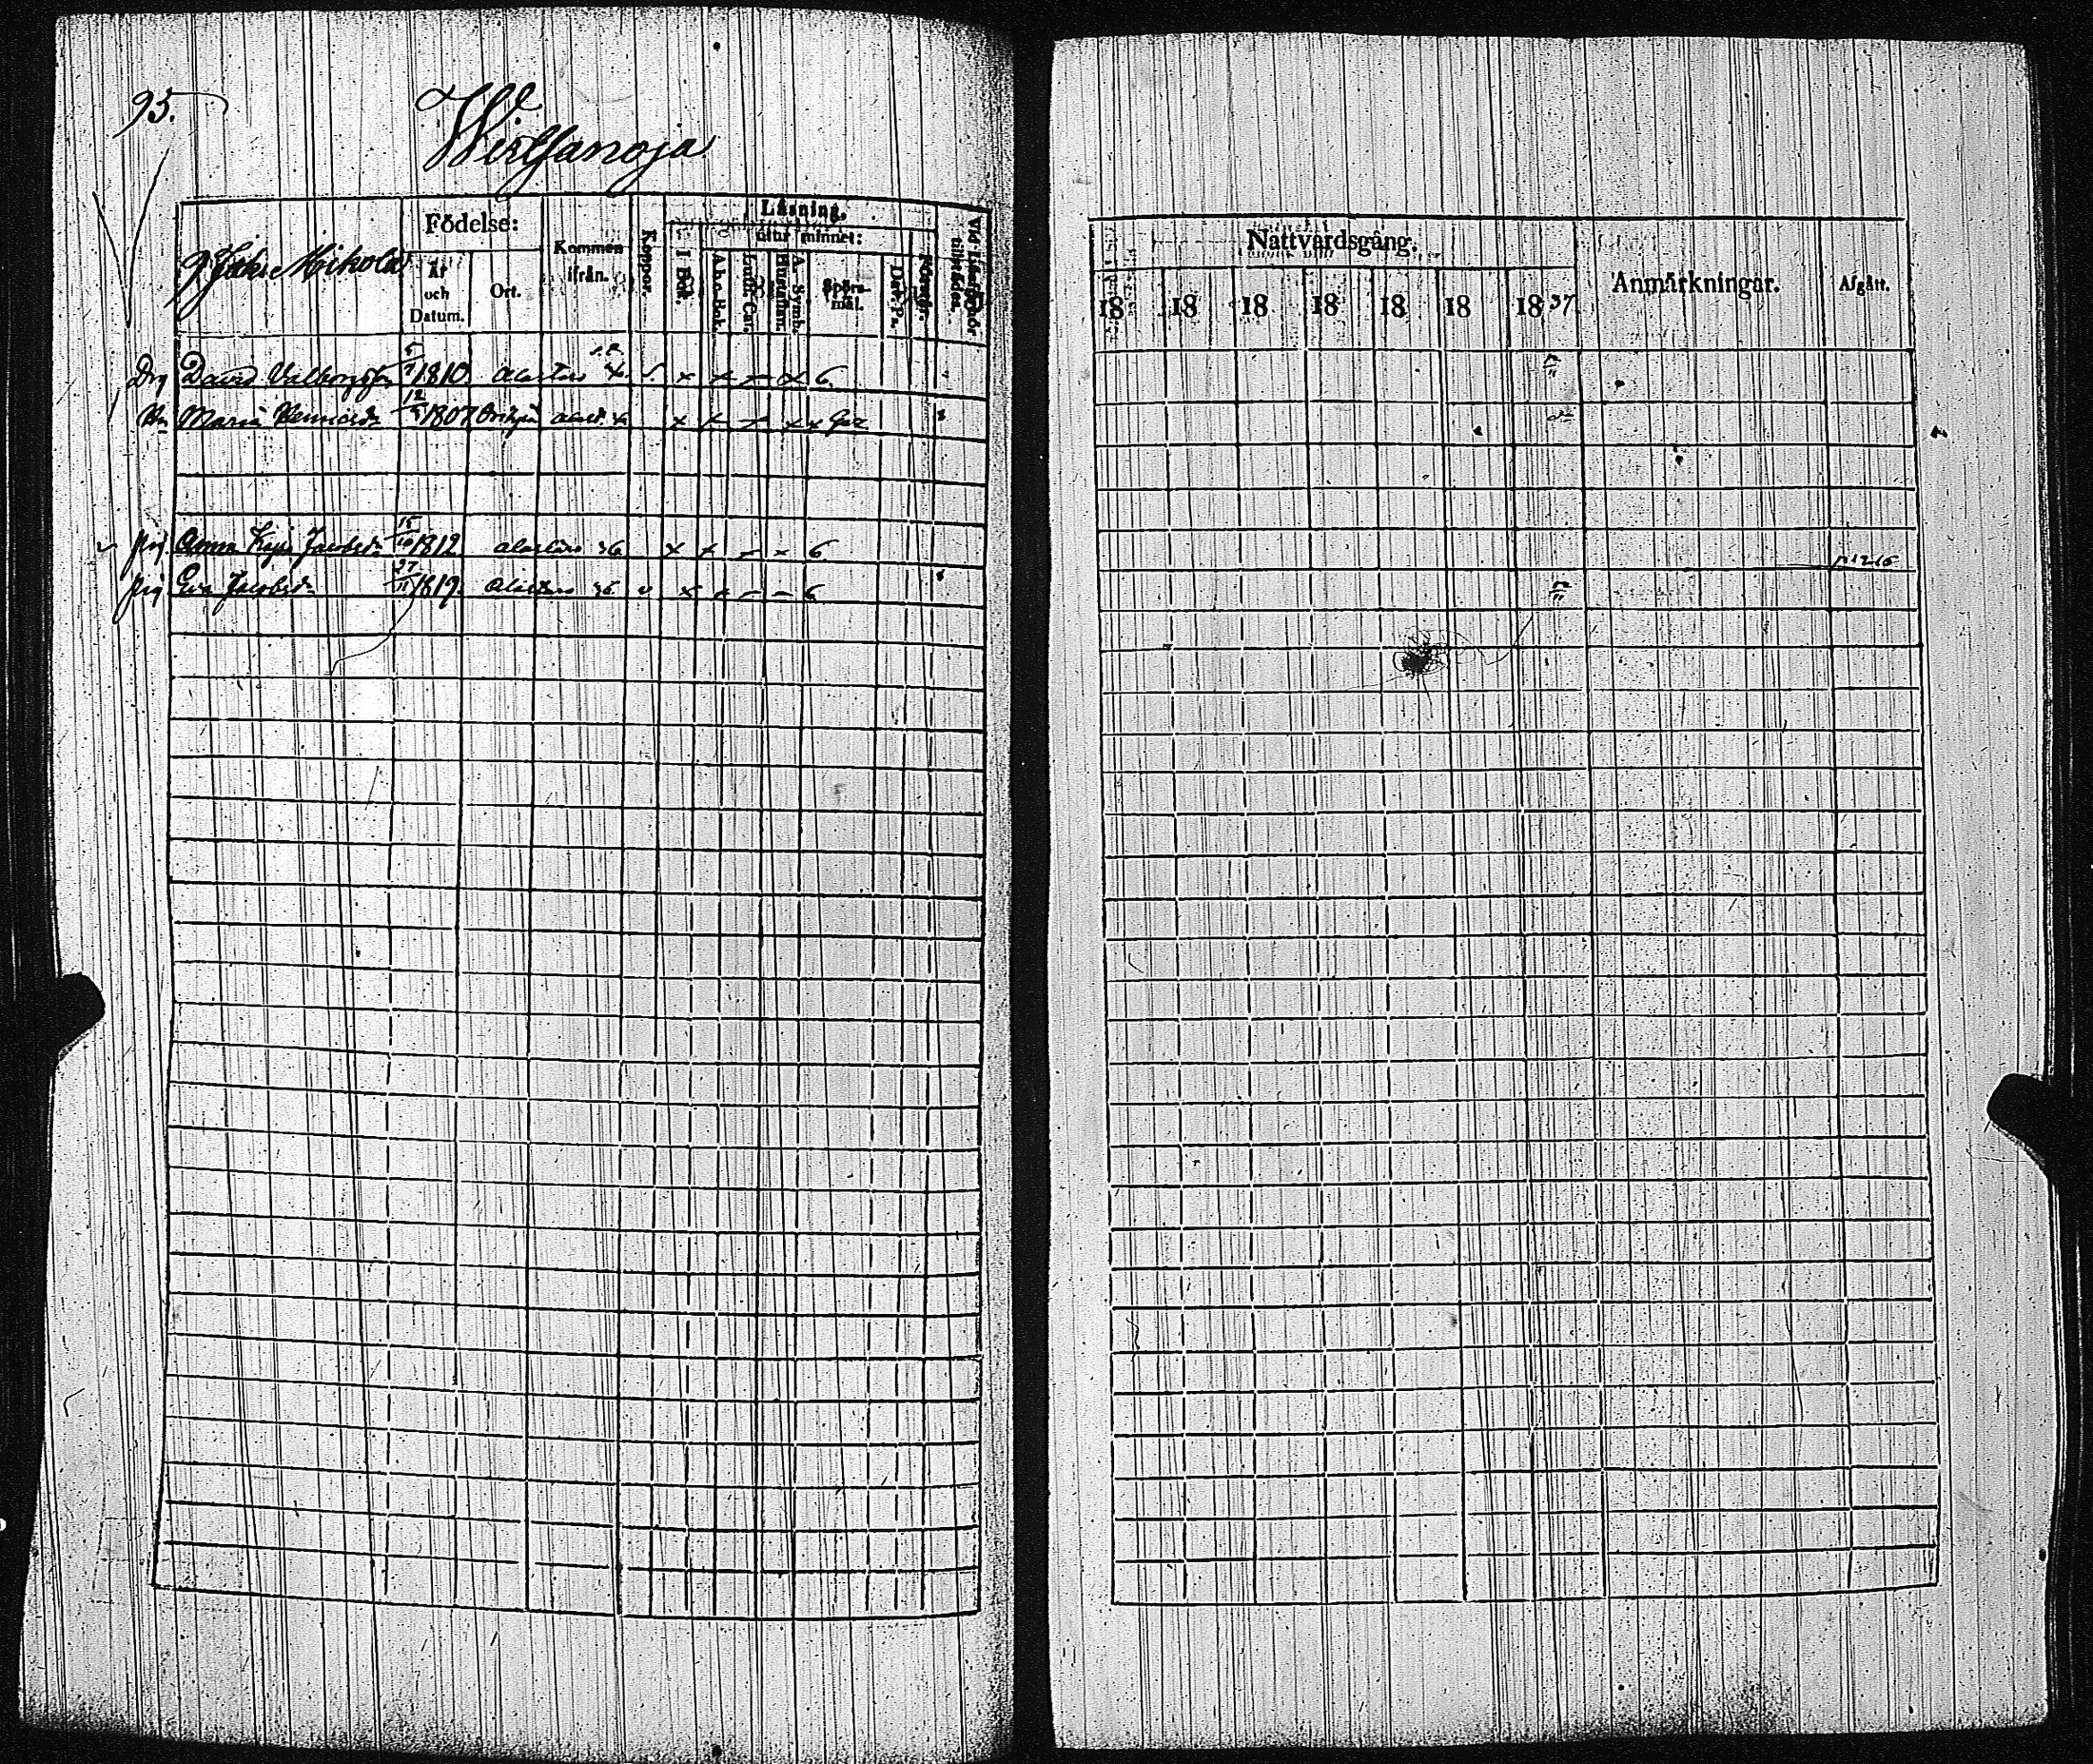 95.
Wirtsanoja
Jahn Mikola
Födelse:
År och Datum.
Ort.
Kommen ifrån.
Koppor.
Läsning.
I Bok.
utur minnet:
A-b-c-Bok.
Luth. Cat.
A. Symb. Hustaflan.
Spörs-mål.
Dav. Ps.
Förstår.
Vid Läsförhör tillstädes.
Drg David Valborgsson 5/1 1810 Alastaro 6.
Maria Henricsd. 12/ 1807 Orihpä Alast.
pig Anna Kajsa Jacobsd. 15/10 1812 Alastaro 36 6
pig Eva Jacobsd. 27/11 1819. Alastaro 36 6
Nattvardsgång.
18 18 18 18 18 18 1837
Anmärkningar.
Afgått.